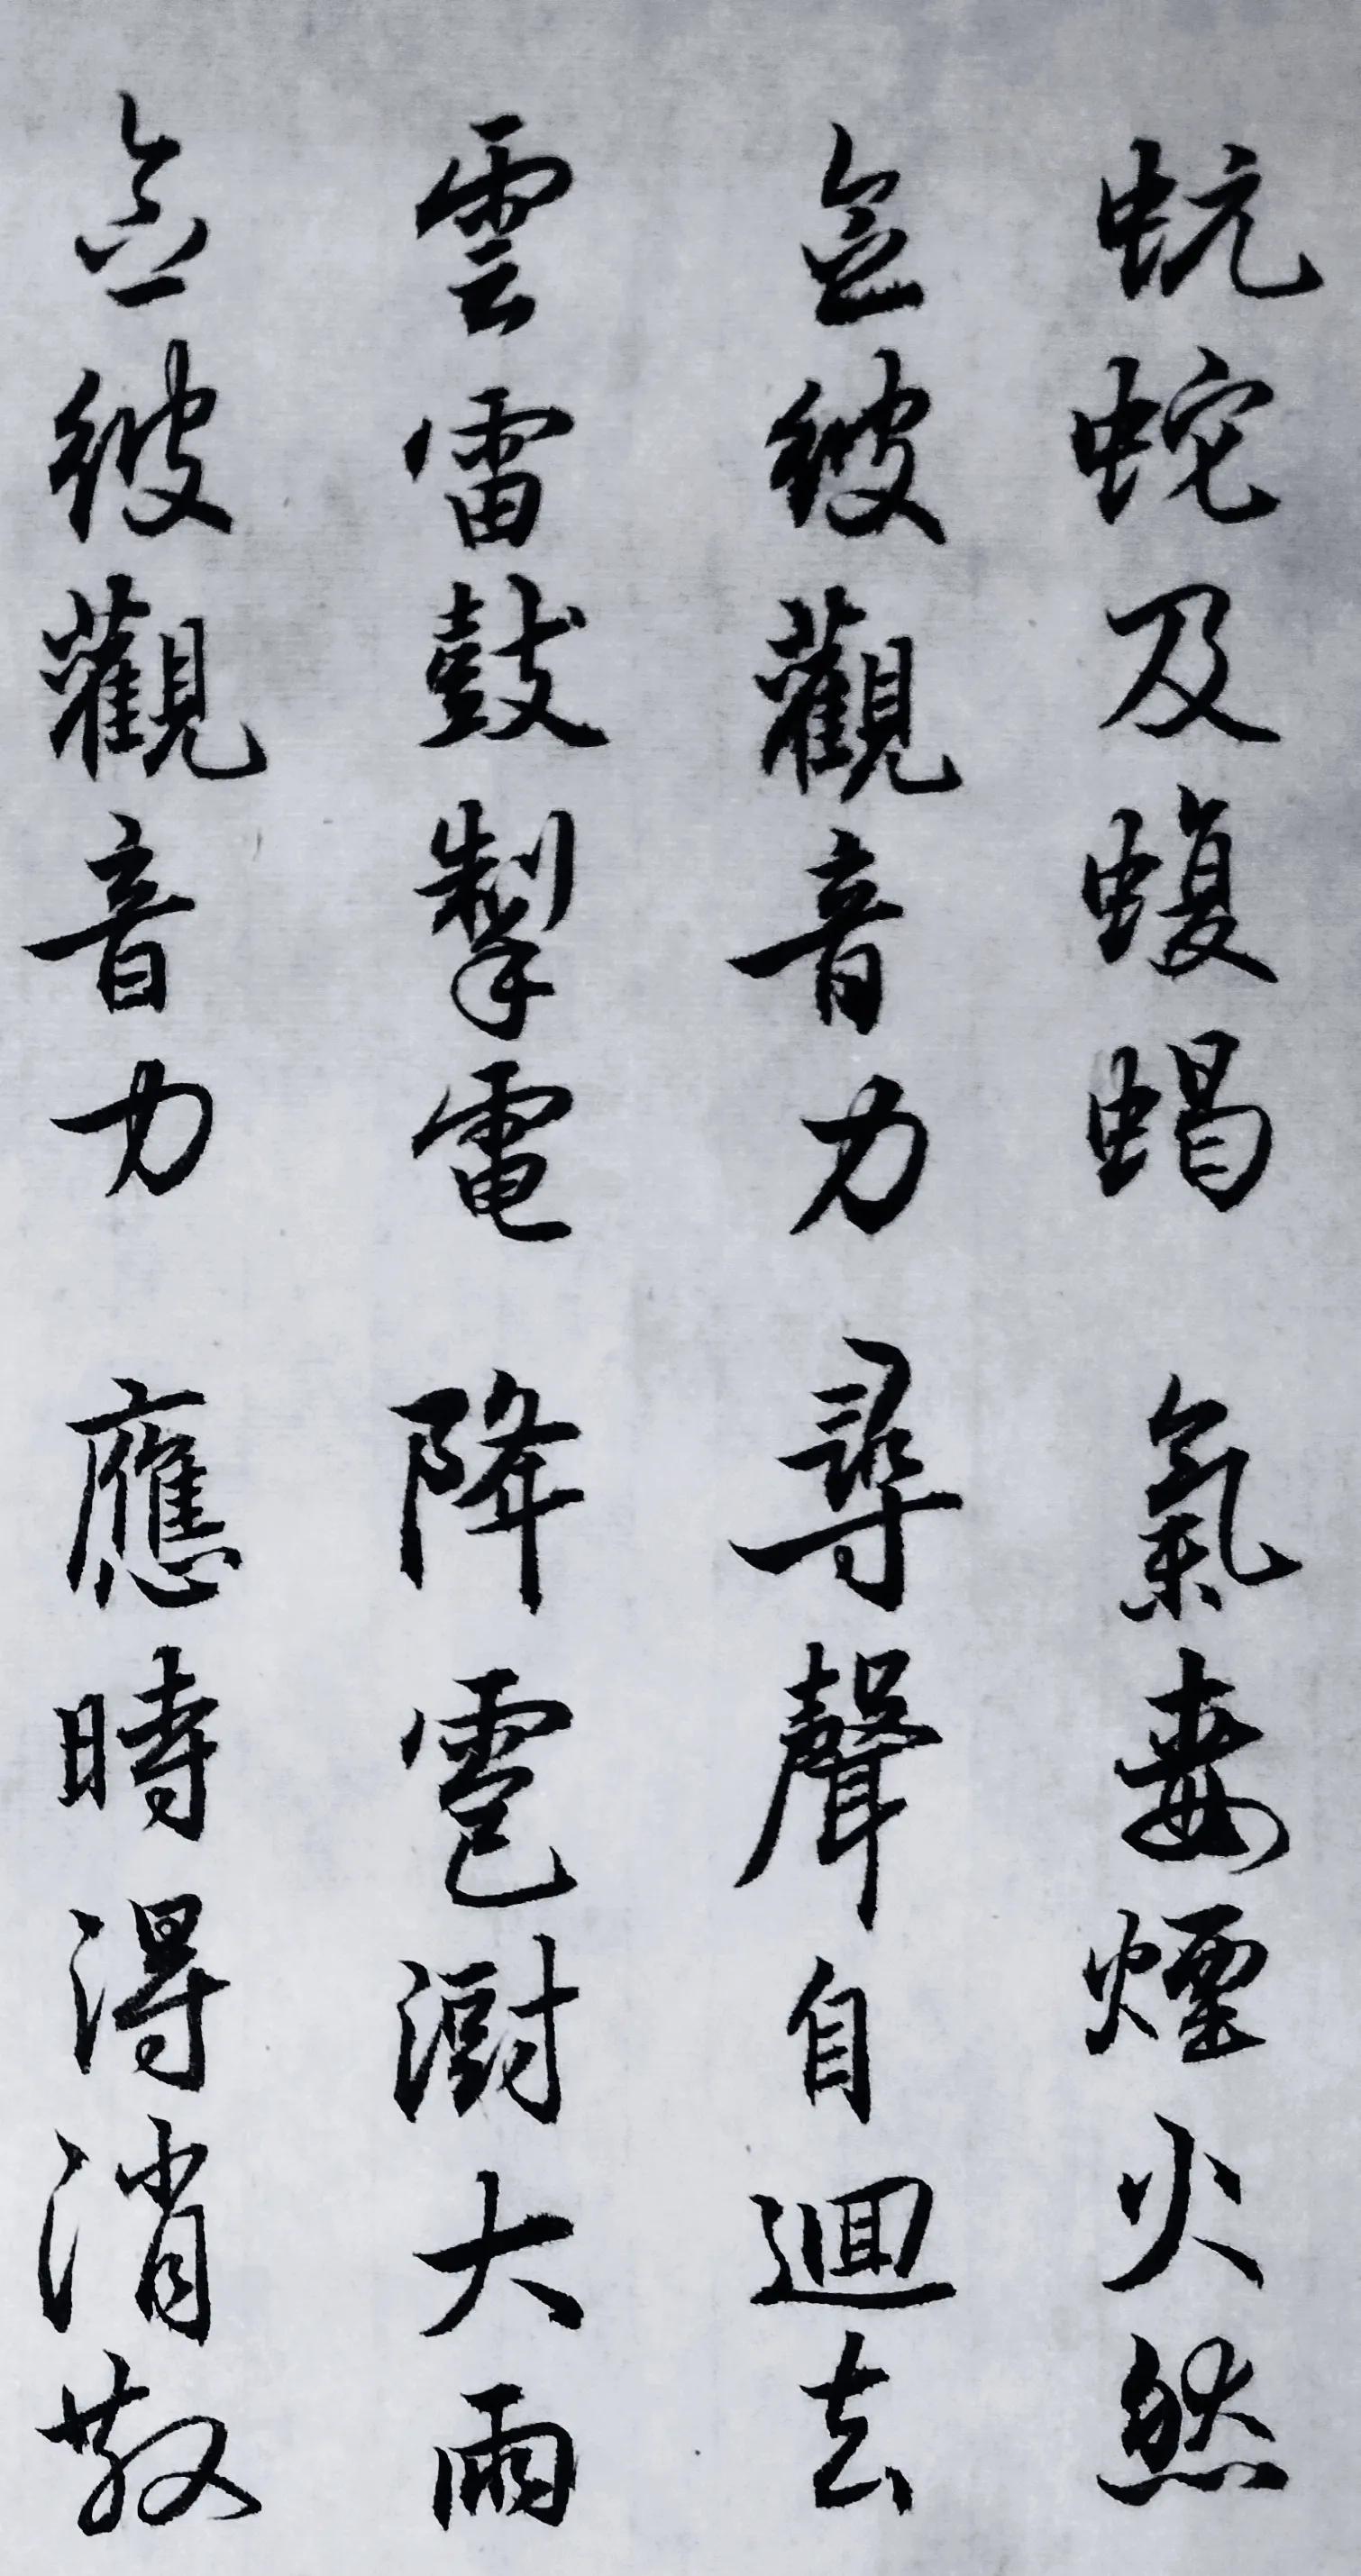 蚖蛇及蝮蝎 氣毒煙火然
念彼觀音力 尋聲自迴去
雲雷鼓掣電 降雹澍大雨
念彼觀音力 應時得消散